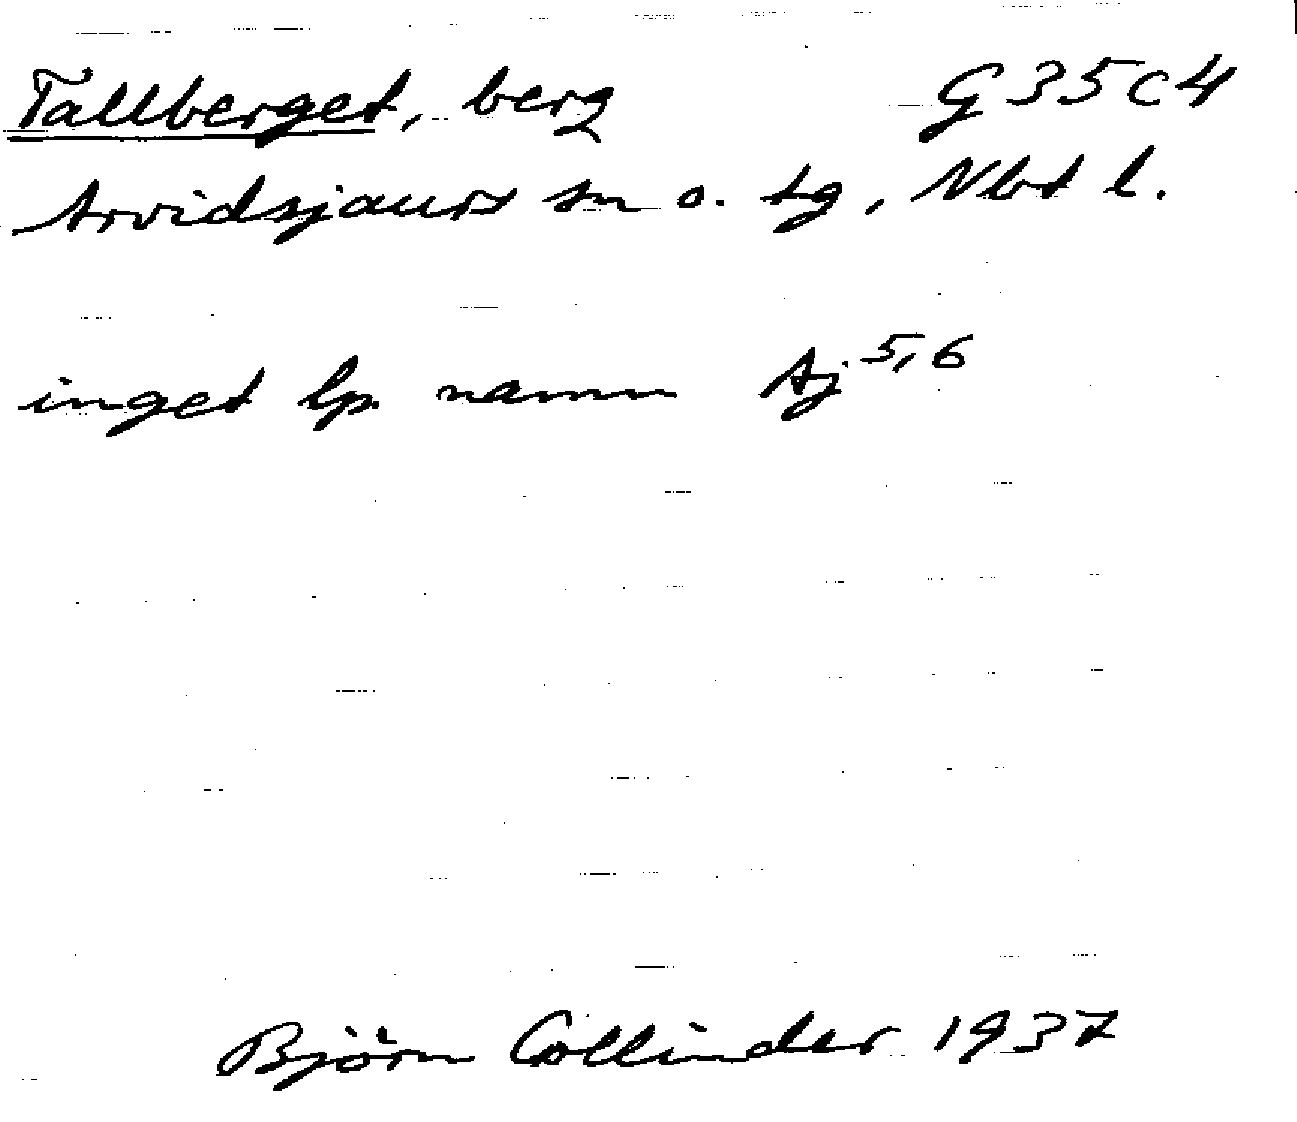 Tallberget, berg G35C4
Arvidsjaurs sn o. tg, Nbt l.
inget lp. namn Aj 5,6
Björn Collinder 1937